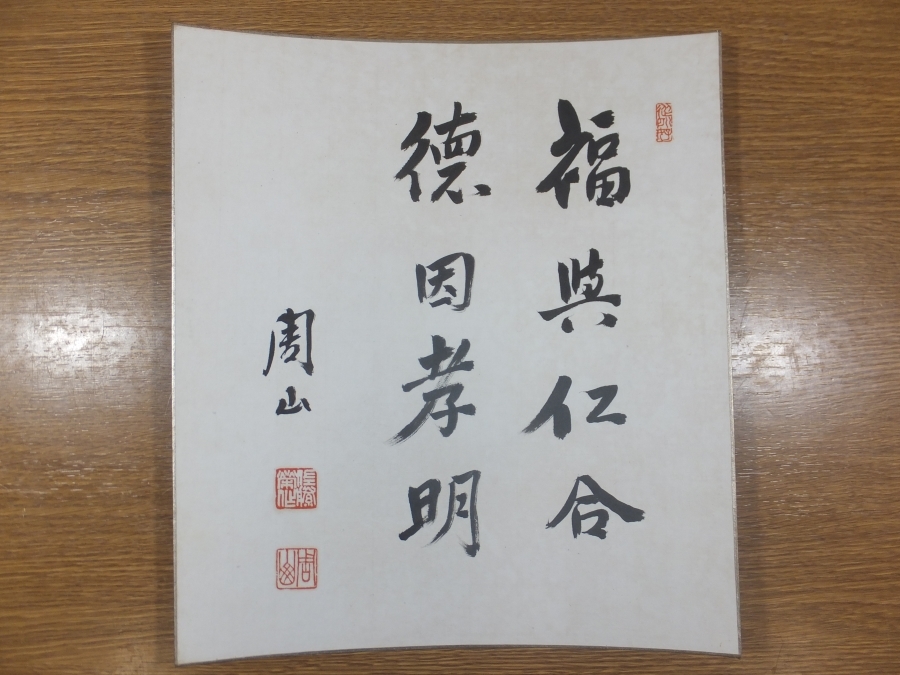 福與仁合
德因孝明
周山
周山